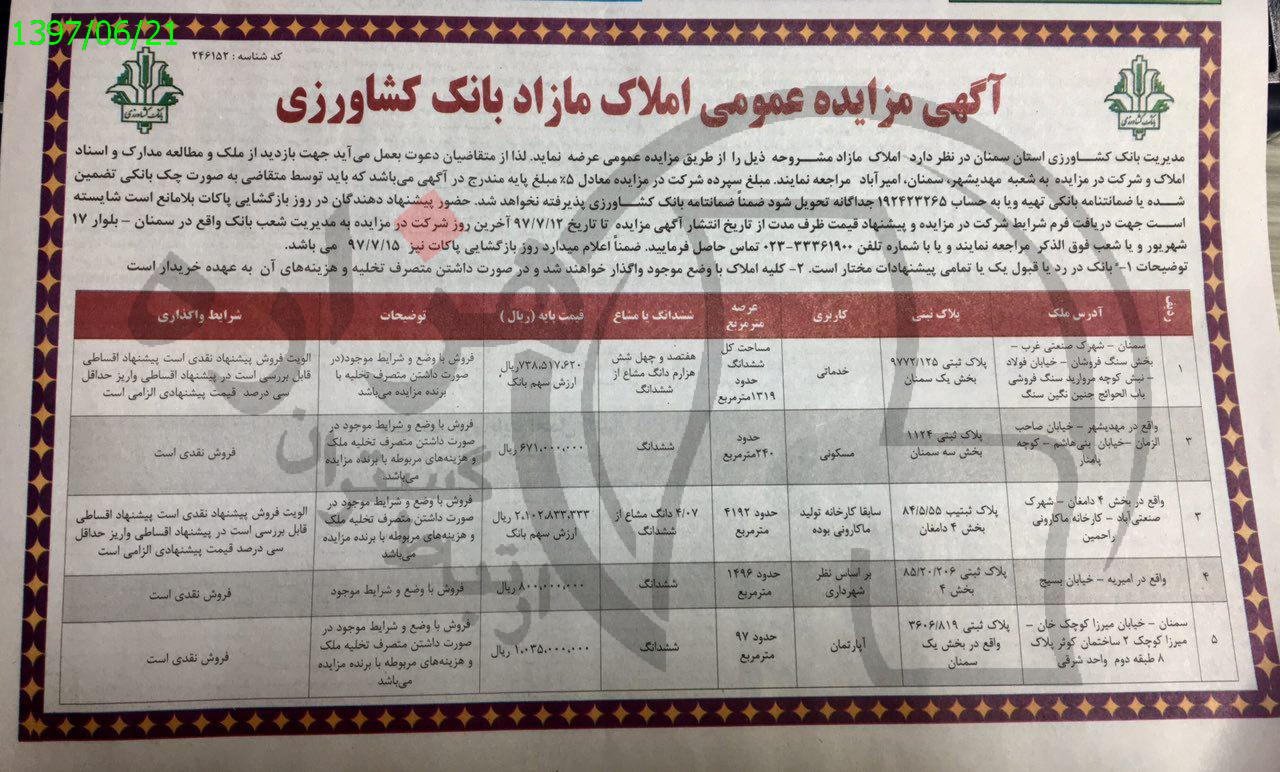 1397/06/21
کد شناسه : ۲۴۶۱۵۲
بانک کشاورزی
بانک کشاورزی
آگهی مزایده عمومی املاک مازاد بانک کشاورزی
مدیریت بانک کشـاورزی استان سمنان در نظر دارد املاک مازاد مشـروحه ذیل را از طریق مزایده عمومی عرضه نماید. لذا از متقاضیان دعوت بعمل می‌آید جهت بازدید از ملک و مطالعه مدارک و اسناد
املاک و شرکت در مزایده به شعبه مهدیشهر، سمنان، امیرآباد مراجعه نمایند. مبلغ سپرده شرکت در مزایده معادل ۵٪ مبلغ پایه مندرج در آگهی می‌باشد که باید توسط متقاضی به صورت چک بانکی تضمین
شده یا ضمانتنامه بانکی تهیه ویا به حساب ۱۹۲۴۲۳۲۶۵ جداگانه تحویل شود ضمناً ضمانتنامه بانک کشـاورزی پذیرفته نخواهد شد. حضور پیشنهاد دهندگان در روز بازگشایی پاکات بلامانع است شایسته
اسـت جهت دریافت فرم شرایط شرکت در مزایده و پیشنهاد قیمت ظرف مدت از تاریخ انتشار آگهی مزایده تا تاریخ ۹۷/۷/۱۲ آخرین روز شرکت در مزایده به مدیریت شعب بانک واقع در سمنان - بلوار ۱۷
شهریور و یا شعب فوق الذکر مراجعه نمایند و یا با شماره تلفن ۳۳۳۶۱۹۰۰-۰۲۳ تماس حاصل فرمایید. ضمناً اعلام میدارد روز بازگشایی پاکات نیز ۹۷/۷/۱۵ می باشد.
توضیحات ۱- بانک در رد یا قبول یک یا تمامی پیشنهادات مختار است. ۲- کلیه املاک با وضع موجود واگذار خواهند شد و در صورت داشتن متصرف تخلیه و هزینه‌های آن به عهده خریدار است
ردیف آدرس ملک پلاک ثبتی کاربری عرصه مترمربع ششدانگ یا مشاع قیمت پایه (ریال ) توضیحات شرایط واگذاری
۱
سمنان - شهرک صنعتی غرب -
بخش سنگ فروشان - خیابان فولاد
- نبش کوچه مروارید سنگ فروشی
باب الحوائج جنبن نگین سنگ
پلاک ثبتی ۹۷۷۲/۱۲۵
بخش یک سمنان
خدماتی
مساحت کل
ششدانگ
حدود
۱۳۱۹مترمربع
هفتصد و چهل شش
هزارم دانگ مشاع از
ششدانگ
۷۳۸,۵۱۷,۶۲۰ریال
ارزش سهم بانک
فروش با وضع و شرایط موجود(در
صورت داشتن متصرف تخلیه با
برنده مزایده می‌باشد
الویت فروش پیشنهاد نقدی است پیشنهاد اقساطی
قابل بررسی است در پیشنهاد اقساطی واریز حداقل
سی درصد قیمت پیشنهادی الزامی است
۳
واقع در مهدیشهر - خیابان صاحب
الزمان -خیابان بنی‌هاشم - کوچه
پامنار
پلاک ثبتی ۱۱۲۴
بخش سه سمنان
مسکونی
حدود
۲۴۰مترمربع
ششدانگ
۶۷۱,۰۰۰,۰۰۰ ریال
فروش با وضع و شرایط موجود در
صورت داشتن متصرف تخلیه ملک
و هزینه‌های مربوطه با برنده مزایده
می‌باشد.
فروش نقدی است
۳
واقع در بخش ۴ دامغان - شهرک
صنعتی‌آباد - کارخانه ماکارونی
راحمین
پلاک ثبتیب ۸۴/۵/۵۵
بخش ۴ دامغان
سابقا کارخانه تولید
ماکارونی بوده
حدود ۴۱۹۲
مترمربع
۴/۰۷ دانگ مشاع از
ششدانگ
۲,۱۰۲,۸۳۳,۳۳۳ ریال
ارزش سهم بانک
فروش با وضع و شرایط موجود در
صورت داشتن متصرف تخلیه ملک
و هزینه‌های مربوطه با برنده مزایده
می‌باشد
الویت فروش پیشنهاد نقدی است پیشنهاد اقساطی
قابل بررسی است در پیشنهاد اقساطی واریز حداقل
سی درصد قیمت پیشنهادی الزامی است
۴
واقع در امیریه - خیابان بسیج
پلاک ثبتی ۸۵/۲۰/۲۰۶
بخش ۴
بر اساس نظر
شهرداری
حدود ۱۴۹۶
مترمربع
ششدانگ
۸۰۰,۰۰۰,۰۰۰ ریال
فروش با وضع و شرایط موجود
فروش نقدی است
۵
سمنان - خیابان میرزا کوچک خان -
میرزا کوچک ۲ ساختمان کوثر پلاک
۸ طبقه دوم واحد شرقی
پلاک ثبتی ۳۶۰۶/۸۱۹
واقع در بخش یک
سمنان
آپارتمان
حدود ۹۷
مترمربع
ششدانگ
۱,۰۳۵,۰۰۰,۰۰۰ ریال
فروش با وضع و شرایط موجود در
صورت داشتن متصرف تخلیه ملک
و هزینه‌های مربوطه با برنده مزایده
می‌باشد
فروش نقدی است